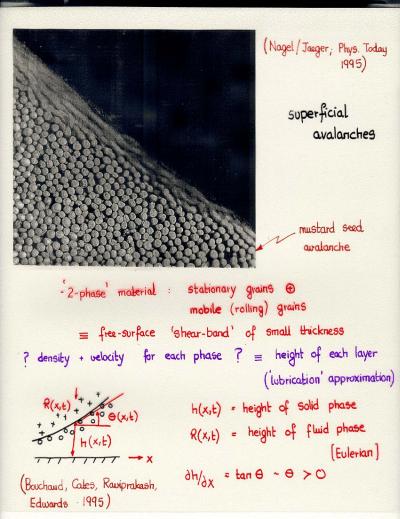 (Nagel/Jaeger; Phys. Today
1995)
superficial
avalanches
mustard seed
avalanche
'2-phase' material : stationary grains ⊕
mobile (rolling) grains
≡ free-surface 'shear-band' of small thickness
? density + velocity for each phase ? ≡ height of each layer
('lubrication' approximation)
R(x,t)
θ(x,t)
h(x,t)
x
h(x,t) = height of solid phase
R(x,t) = height of fluid phase
[Eulerian]
∂h/∂x = tan θ ~ θ > 0
(Bouchaud, Cates, Raviprakash,
Edwards 1995)